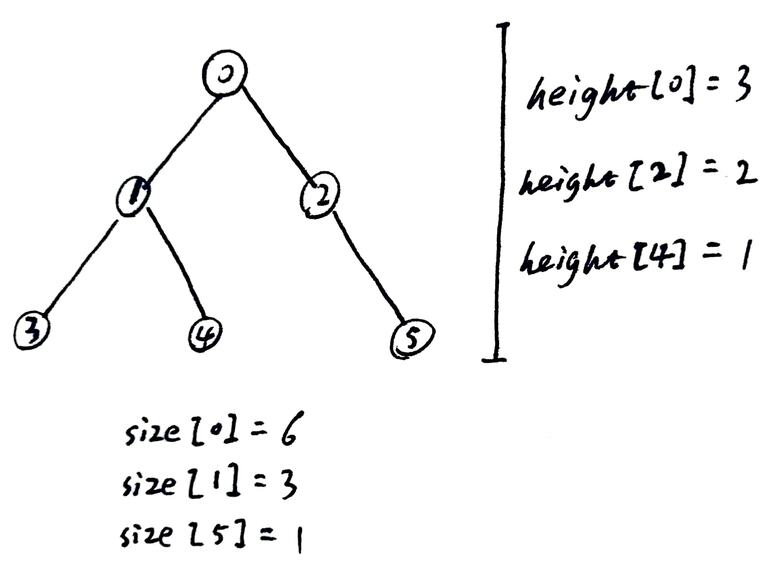 0
1 2
3 4 5
height[0] = 3
height[2] = 2
height[4] = 1
size[0] = 6
size[1] = 3
size[5] = 1